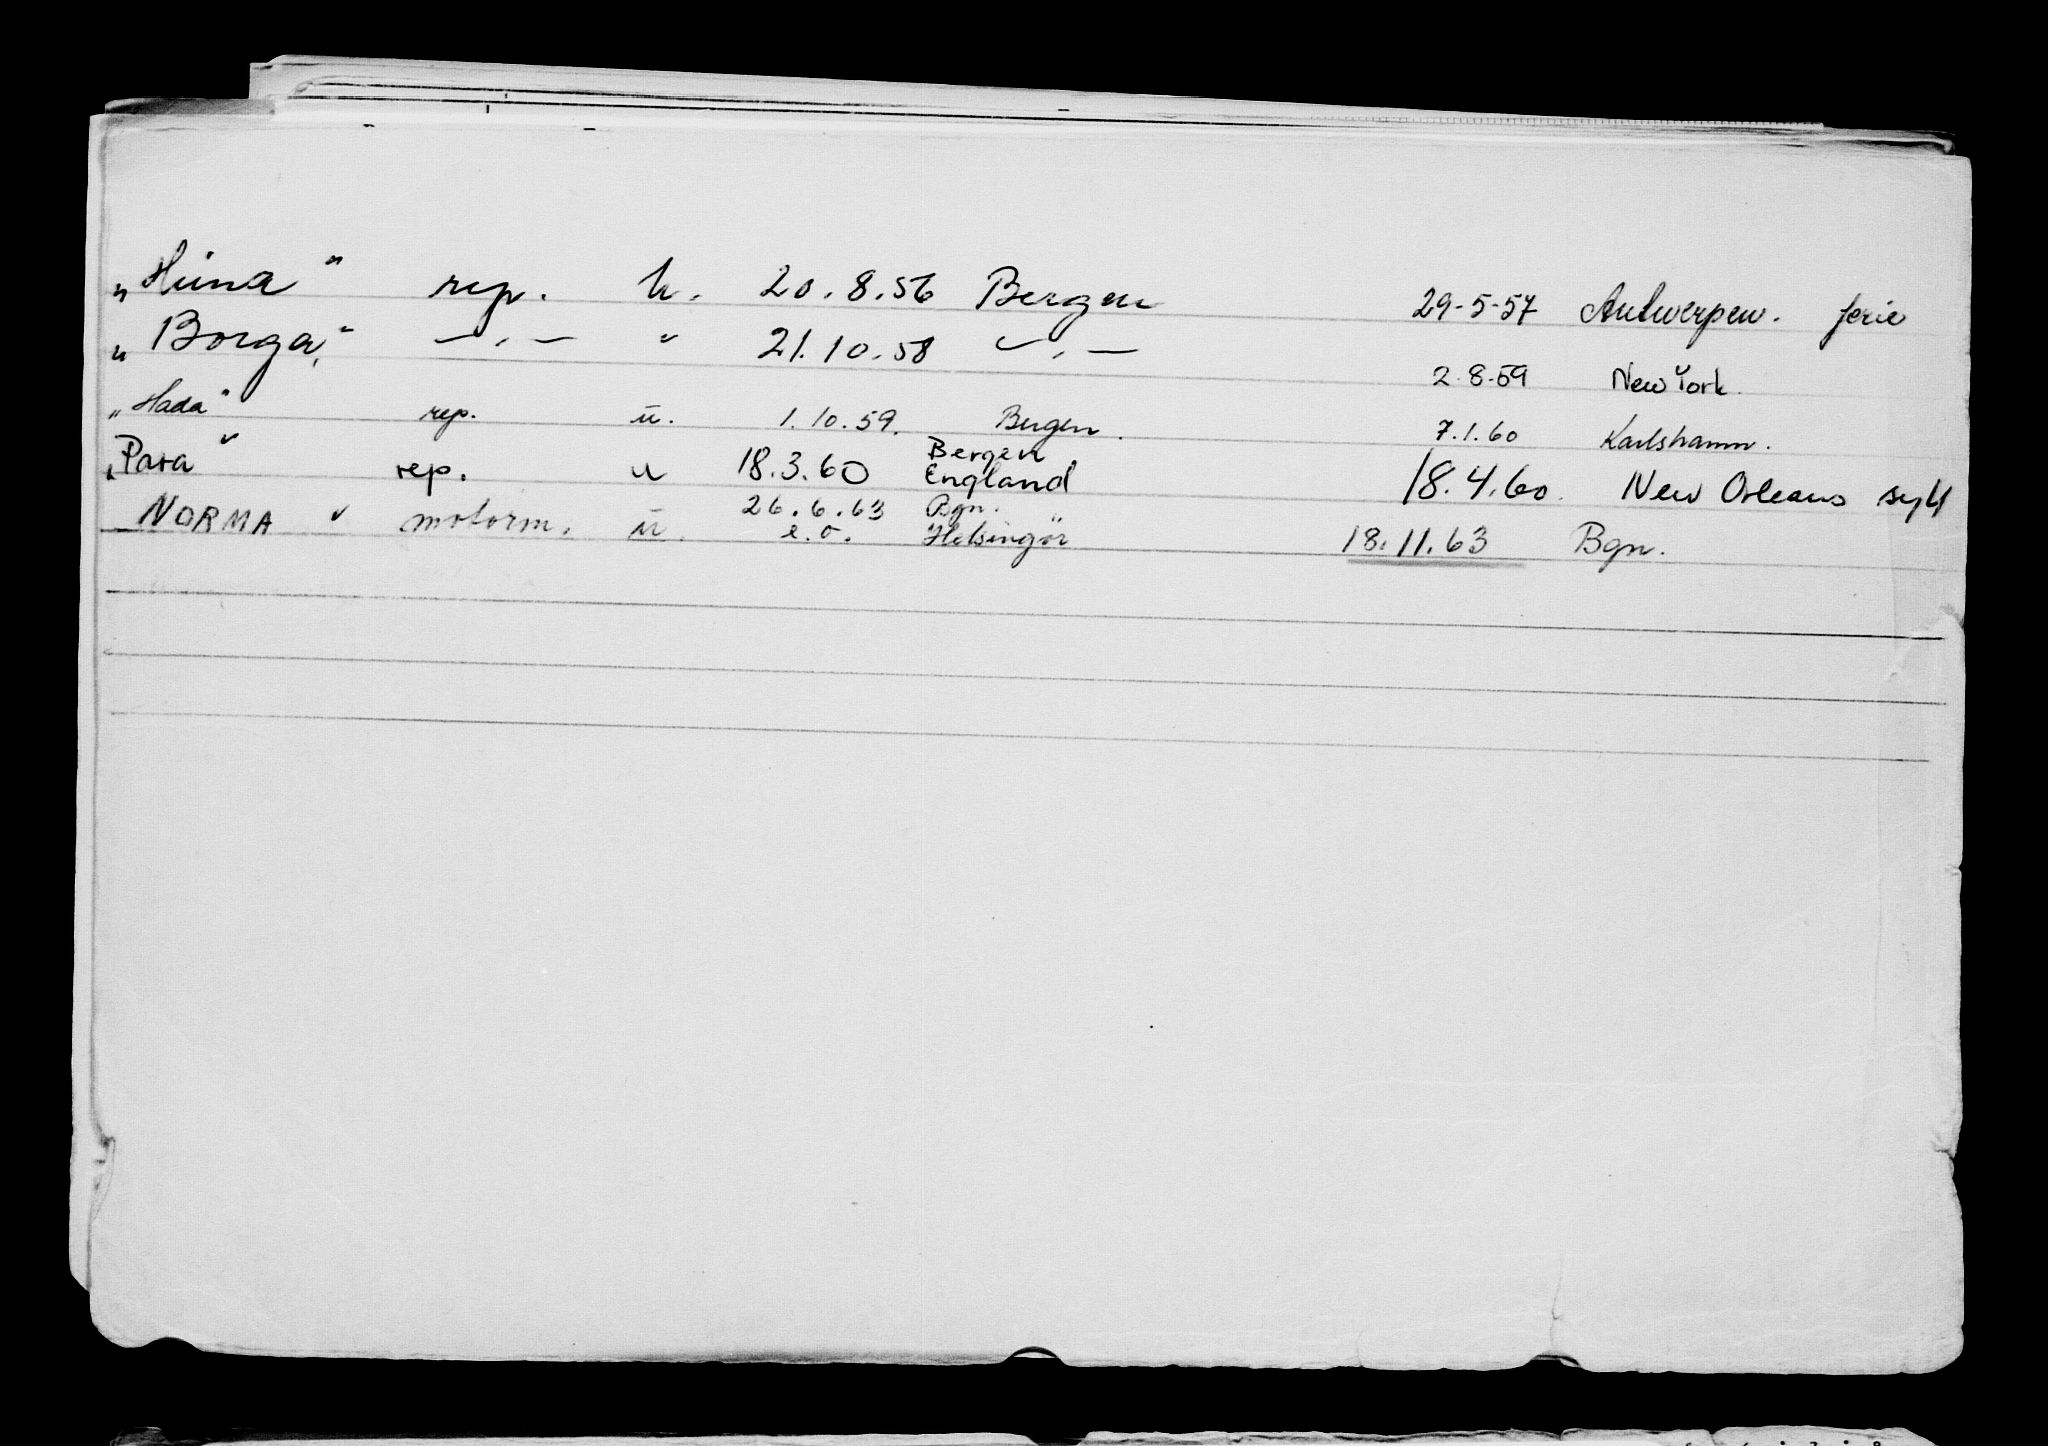 „Hima" rep. u. 20.8.56 Bergen 29-5-57 Antwerpen. ferie
„Borga," —.— " 21.10.58 —.— 2.8.59 New York.
„Hada" rep. u. 1.10.59. Bergen. 7.1.60 Karlshamn.
„Para" rep. u 18.3.60 Bergen England 18.4.60. New Orleans syk
NORMA " motorm. u. 26.6.63 Bgn. 18.11.63 Bgn.
e.o. Helsingör